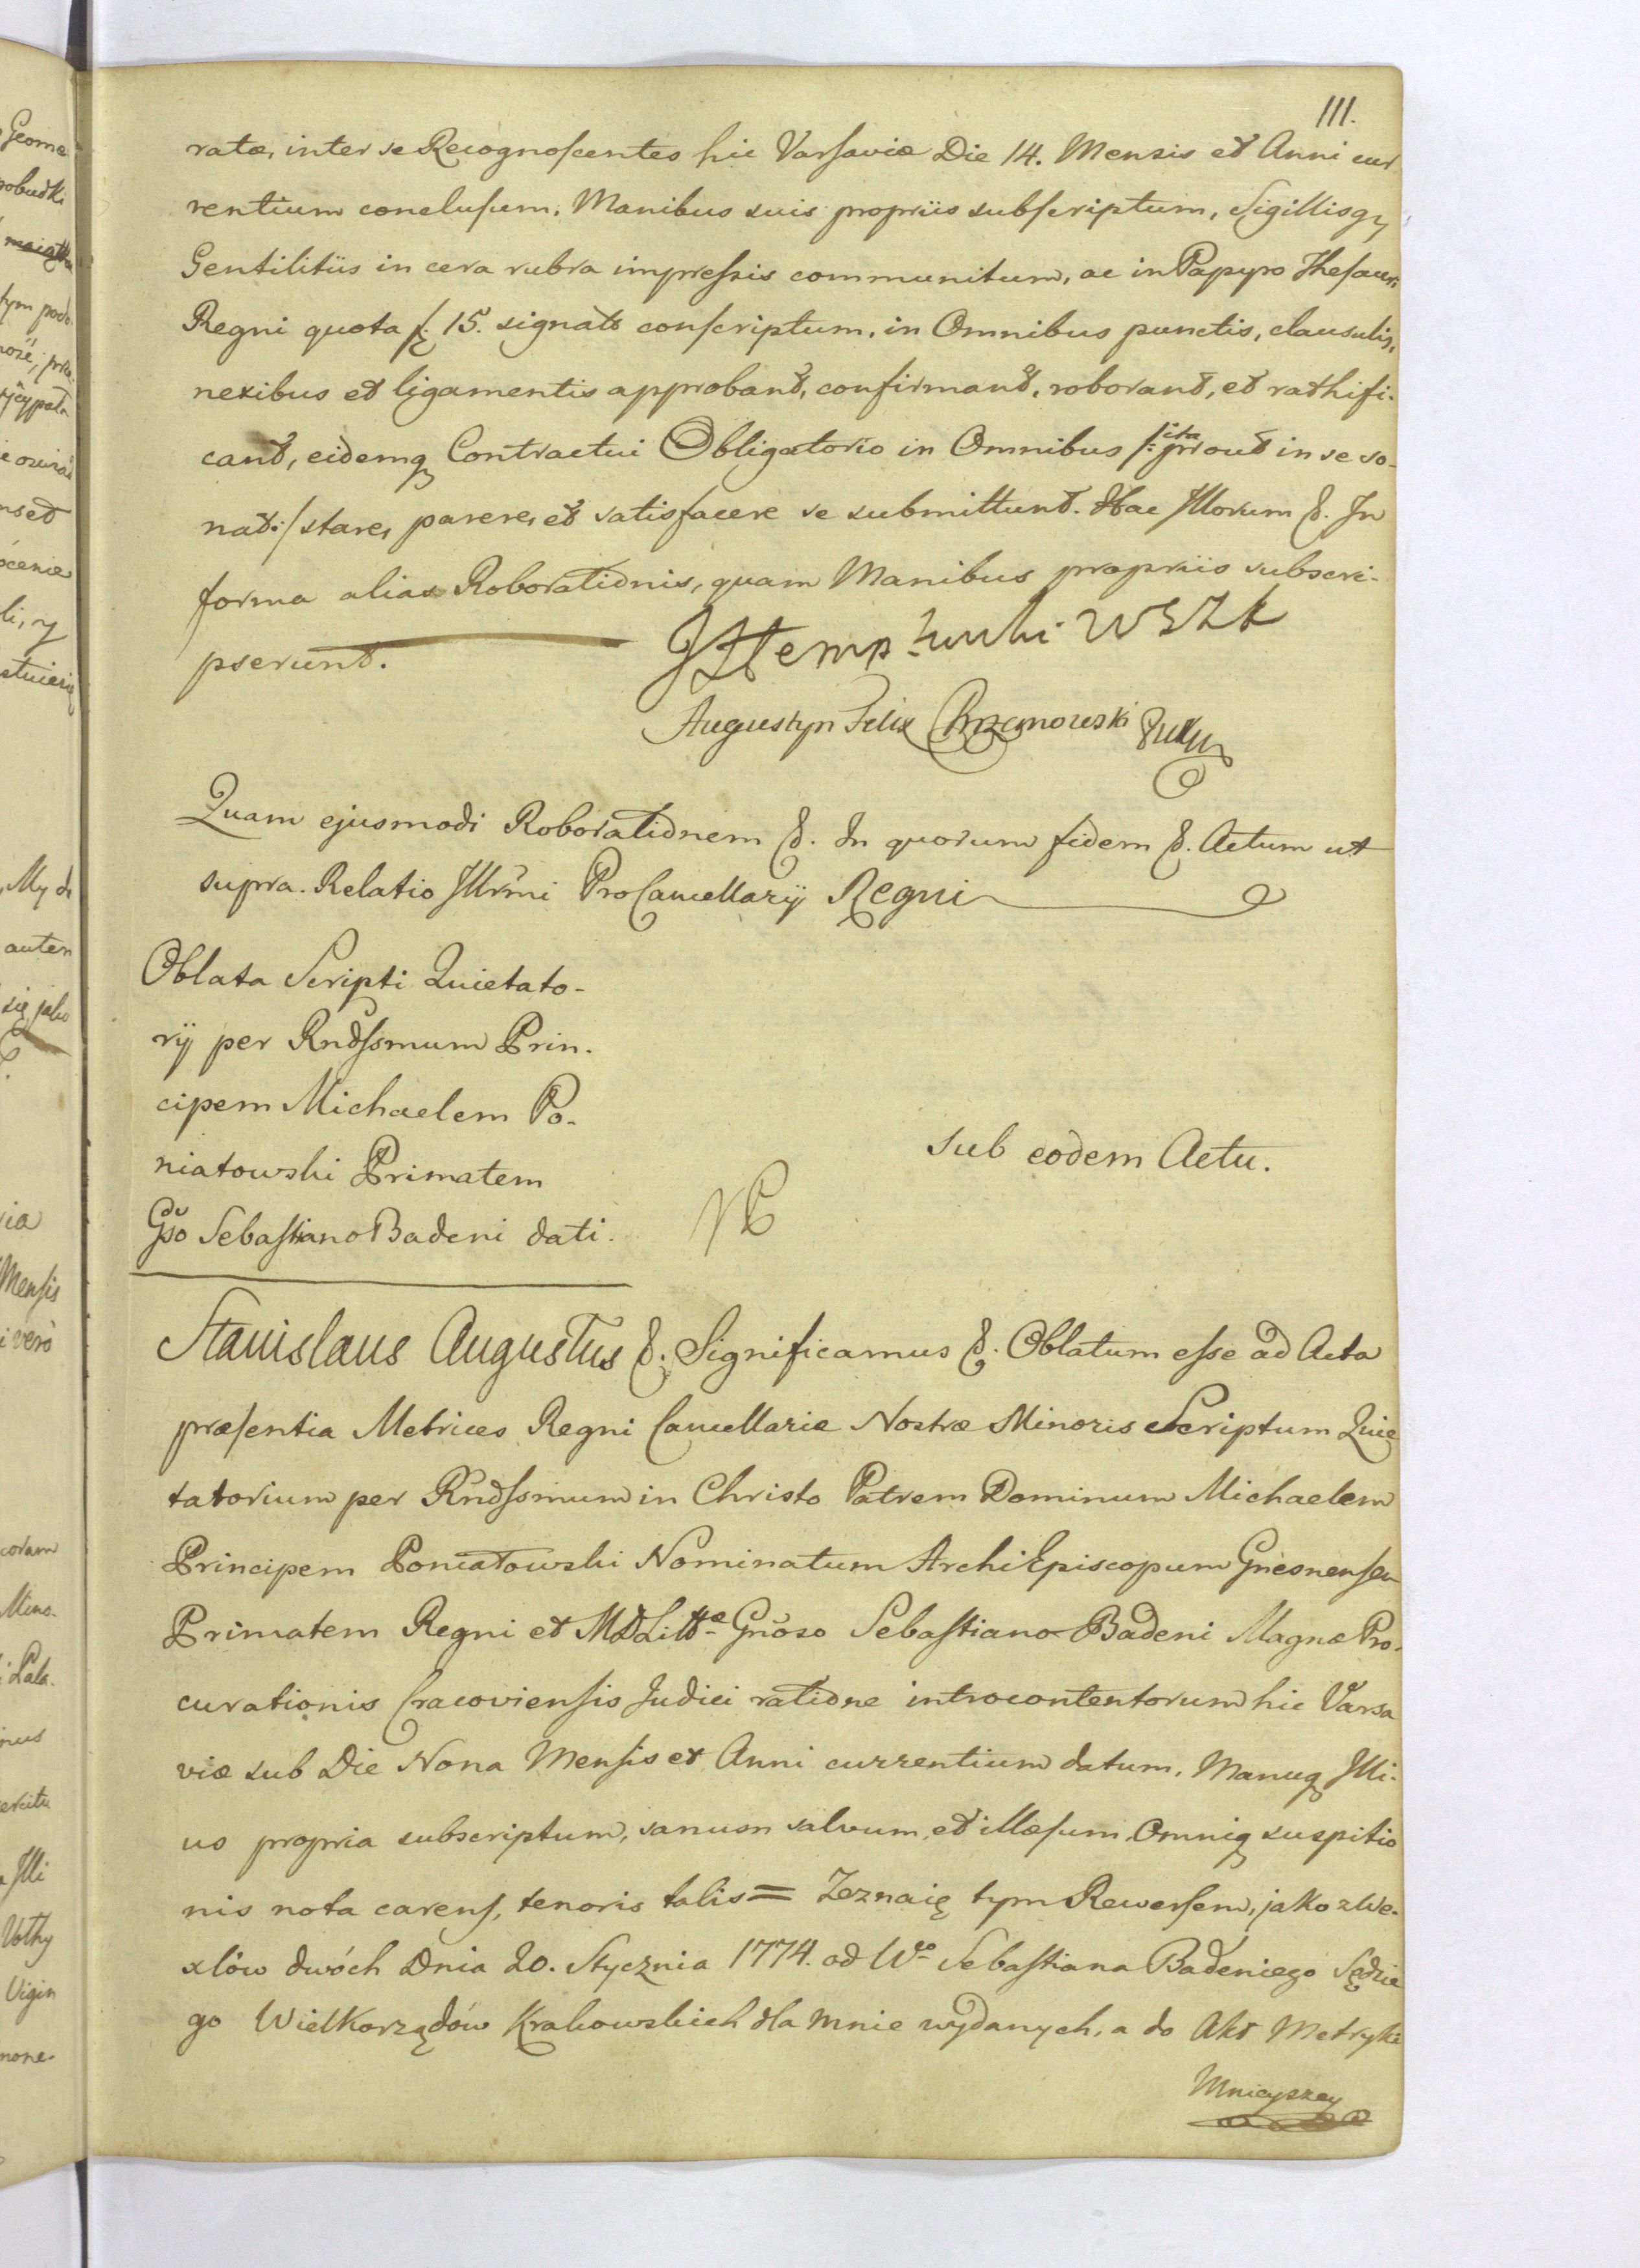 111.
ratæ, inter se Recognoscentes hic Varsaviæ Die 14. Mensis et Anni cur
rentium conclusum, Manibus suis propriis subscriptum, Sigillisq3
Gentilitiis in cera rubra impressis communitum, ac in Papyro Thesauri
Regni quota f. 15. signato conscriptum, in Omnibus punctis, clausulis,
nexibus et ligamentis approbant, confirmant, roborant, et rathifi-
cant, eidemq3 Contractui Obligatorio in Omnibus /: ita prout in se so-
nat :/ stare, parere, et satisfacere se submittunt. Hac Illorum &. In
forma alias Roborationis, quam Manibus propriis subscri-
pserunt.
Augustyn Felix
Quam ejusmodi Roborationem &. In quorum fidem &. Actum ut
supra. Relatio Illrmi ProCancellarij Regni
Oblata Scripti Quietato-
rij per Rndssmum Prin-
cipem Michaelem Po-
niatowski Primatem
Gso Sebastiano Badeni dati.
sub eodem Actu.
Stanislaus Augustus &. Significamus &. Oblatum esse ad Acta
præsentia Metrices Regni Cancellariæ Nostræ Minoris Scriptum Quie
tatorium per Rndssmum in Christo Patrem Dominum Michaelem
Principem Poniatowski Nominatum ArchiEpiscopum Gnesnensem
Primatem Regni et MDLittæ Gnoso Sebastiano Badeni Magnæ Pro-
curationis Cracoviensis Judici ratione introcontentorum hic Varsa
viæ sub Die Nona Mensis et Anni currentium datum, Manuq3 Illi-
us propria subscriptum, sanum salvum, et illæsum, Omniq3 suspitio
nis nota carens, tenoris talis = Zeznaię tym Rewersem, jako z We-
xlów dwóch Dnia 20. Stycznia 1774. od Wo Sebastiana Badeniego Sędzie
go Wielkorządów Krakowskich dla mnie wydanych, a do Akt Metryki
Mnieyszey